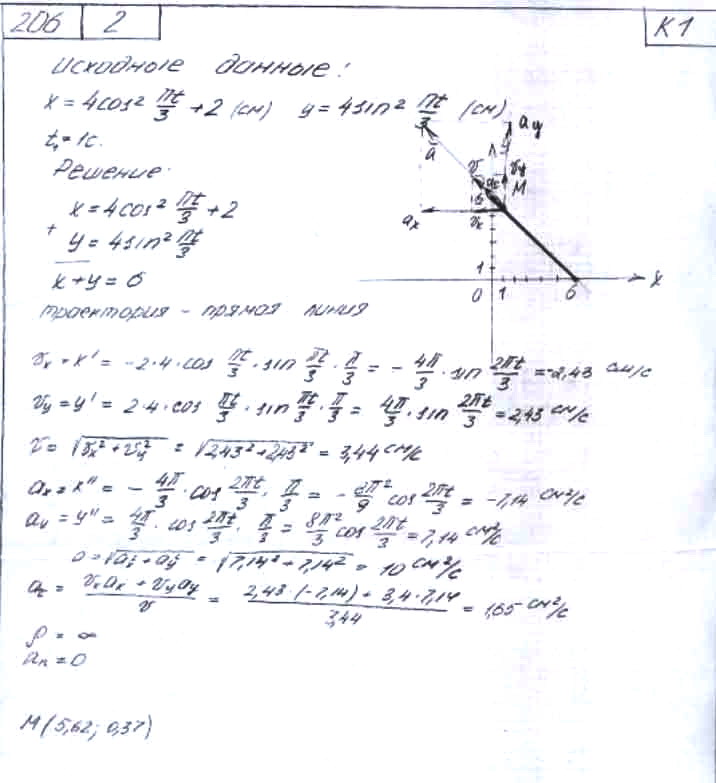 206 2 K1
Исходные данные:
x = 4cos² πt/3 + 2 (см) y = 4sin² πt/3 (см)
t₁ = 1с.
Решение:
x = 4cos² πt/3 + 2
+
y = 4sin² πt/3
x + y = 6
траектория - прямая линия
ay
y
ā
v
vy
M
6
ax
vx
1
0 1 6 x
vx = x' = -2·4·cos πt/3 · sin πt/3 · π/3 = - 4π/3 · sin 2πt/3 = -2,43 см/с
vy = y' = 2·4·cos πt/3 · sin πt/3 · π/3 = 4π/3 · sin 2πt/3 = 2,43 см/с
v = √(vx² + vy²) = √(2,43² + 2,43²) = 3,44 см/с
ax = x'' = - 4π/3 · cos 2πt/3 · π/3 = - 8π²/9 cos 2πt/3 = -7,14 см²/с
ay = y'' = 4π/3 · cos 2πt/3 · π/3 = 8π²/3 cos 2πt/3 = 7,14 см²/с
a = √(ax² + ay²) = √(7,14² + 7,14²) = 10 см²/с
aτ = (vx ax + vy ay)/v = (2,43·(-7,14) + 3,4·7,14)/3,44 = 1,65 см²/с
ρ = ∞
an = 0
M(5,62; 0,37)